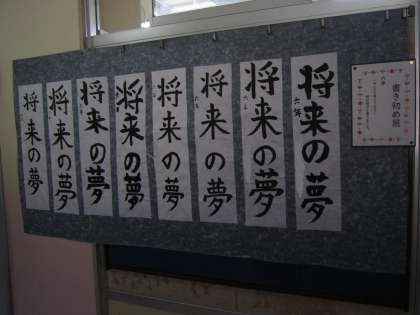 書き初め展
六年
将来の夢
六年
将来の夢
将来の夢
将来の夢
将来の夢
将来の夢
将来の夢
将来の夢